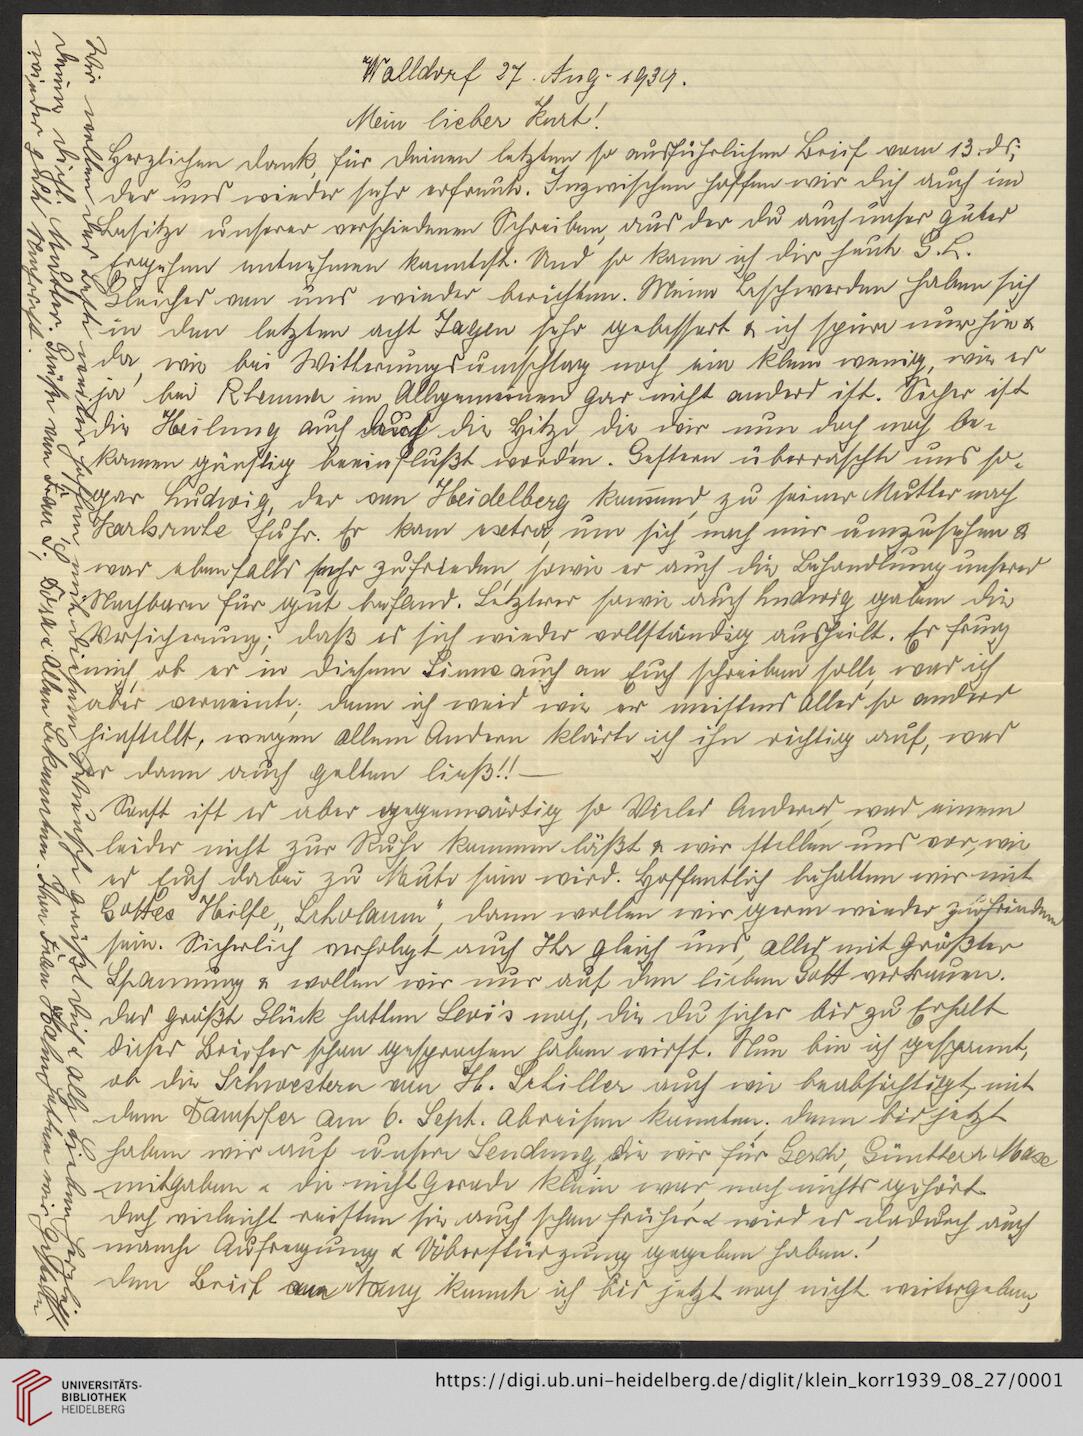 Walldorf 27. Aug. 1939.
Mein lieber Kurt!
Herzlichen Dank, für Deinen letzten so ausführlichen Brief vom 13. ds;
der uns wieder sehr erfreute. Inzwischen hoffen wir Dich auch im
Besitze unserer verschiedenen Schreiben, aus der Du auch unser gutes
Ergehen entnehmen konntest. Und so kann ich Dir heute G. L.
Gleiches von uns wieder berichten. Meine Beschwerden haben sich
in den letzten acht Tagen sehr gebessert & ich spüre nur hie &
da, wie bei Witterungsumschlag noch ein klein wenig, wie es
ja bei Rheuma im Allgemeinen gar nicht anders ist. Sicher ist
die Heilung auch durch die Hitze, die wir nun doch noch be-
kamen günstig beeinflußt worden. Gestern überraschte uns so-
gar Ludwig, der von Heidelberg kommend, zu seiner Mutter nach
Karlsruhe fuhr. Er kam extra, um sich nach mir umzusehen &
war ebenfalls sehr zufrieden, sowie er auch die Behandlung unseres
Nachbarn für gut befand. Letzterer sowie auch Ludwig gaben die
Versicherung; daß es sich wieder vollständig ausheilt. Er frug
mich, ob er in diesem Sinne auch an Euch schreiben solle, was ich
aber verneinte; denn ich weis wie er meistens Alles so anders
hinstellt, wegen allem Andern klärte ich ihn richtig auf, was
er dann auch gelten ließ!! —
Sonst ist es aber gegenwärtig so Vieles Anderes, was einem
leider nicht zur Ruhe kommen läßt & wir stellen uns vor, wie
es Euch dabei zu Mute sein wird. Hoffentlich behalten wir mit
Gottes Hilfe „Scholaum", dann wollen wir gern wieder zufrieden
sein. Sicherlich verfolgt auch Ihr gleich uns, alles mit größter
Spannung & wollen wir nur auf den lieben Gott vertrauen.
Das größte Glück hatten Levi's noch, die Du sicher bis zu Erhalt
dieses Briefes schon gesprochen haben wirst. Nun bin ich gespannt,
ob die Schwestern von H. Schiller auch wie beabsichtigt mit
dem Dampfer am 6. Sept. abreisen konnten; denn bis jetzt
haben wir auf unsere Sendung, die wir für Gerda, Günther & Max
mitgaben & die nicht gerade klein war, noch nichts gehört
doch vieleicht reisten sie auch schon früher & wird es dadurch auch
manche Aufregung & Überstürzung gegeben haben!
Den Brief von Nany konnte ich bis jetzt noch nicht weitergeben,
Wir wollen das Beste weiter hoffen, mit diesem Wunsche grüßt Dich & alle Lieben herzlich
Deine Dich Mutter. Grüße von Frau S., & allen Bekannten. Von Frau Hahn hatten wir
wieder gute Nachricht.
UNIVERSITÄTS-
BIBLIOTHEK
HEIDELBERG
https://digi.ub.uni-heidelberg.de/diglit/klein_korr1939_08_27/0001